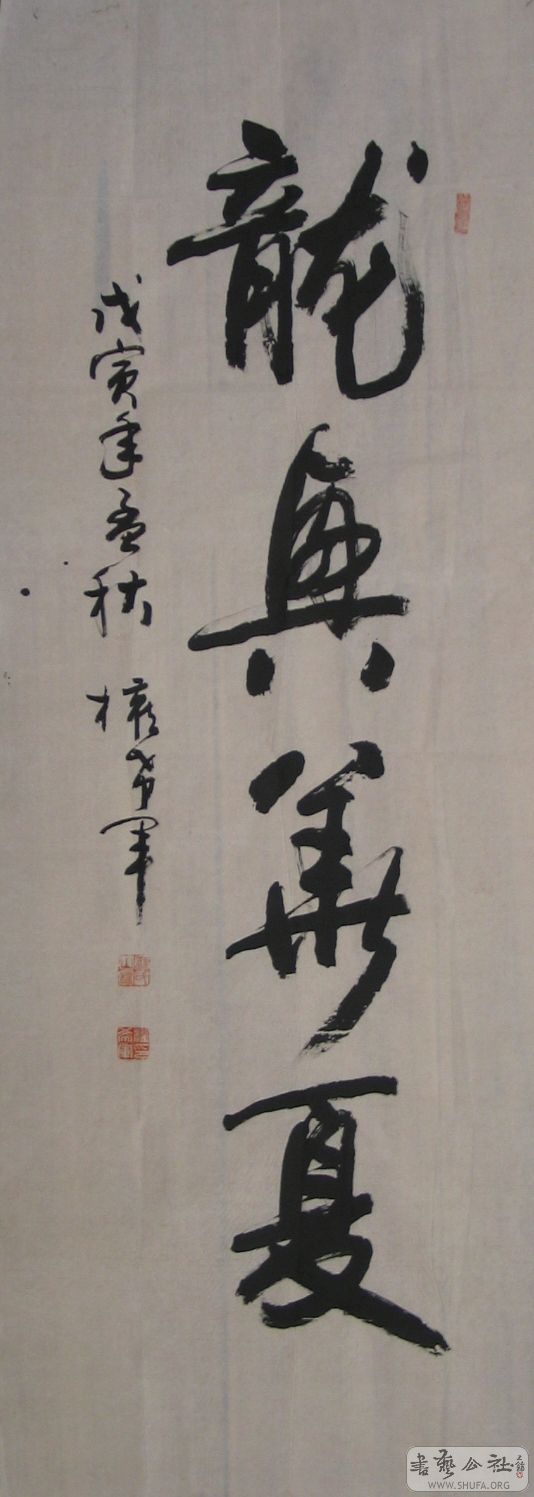 龍興華夏
戊寅年孟秋 權希軍
書藝公社
WWW.SHUFA.ORG